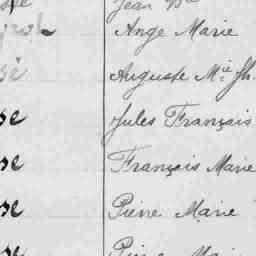 Jean B
Ange Marie
Auguste Mie Jh.
se Jules Français
se François Marie
se Pierre Marie
se Pierre Marie